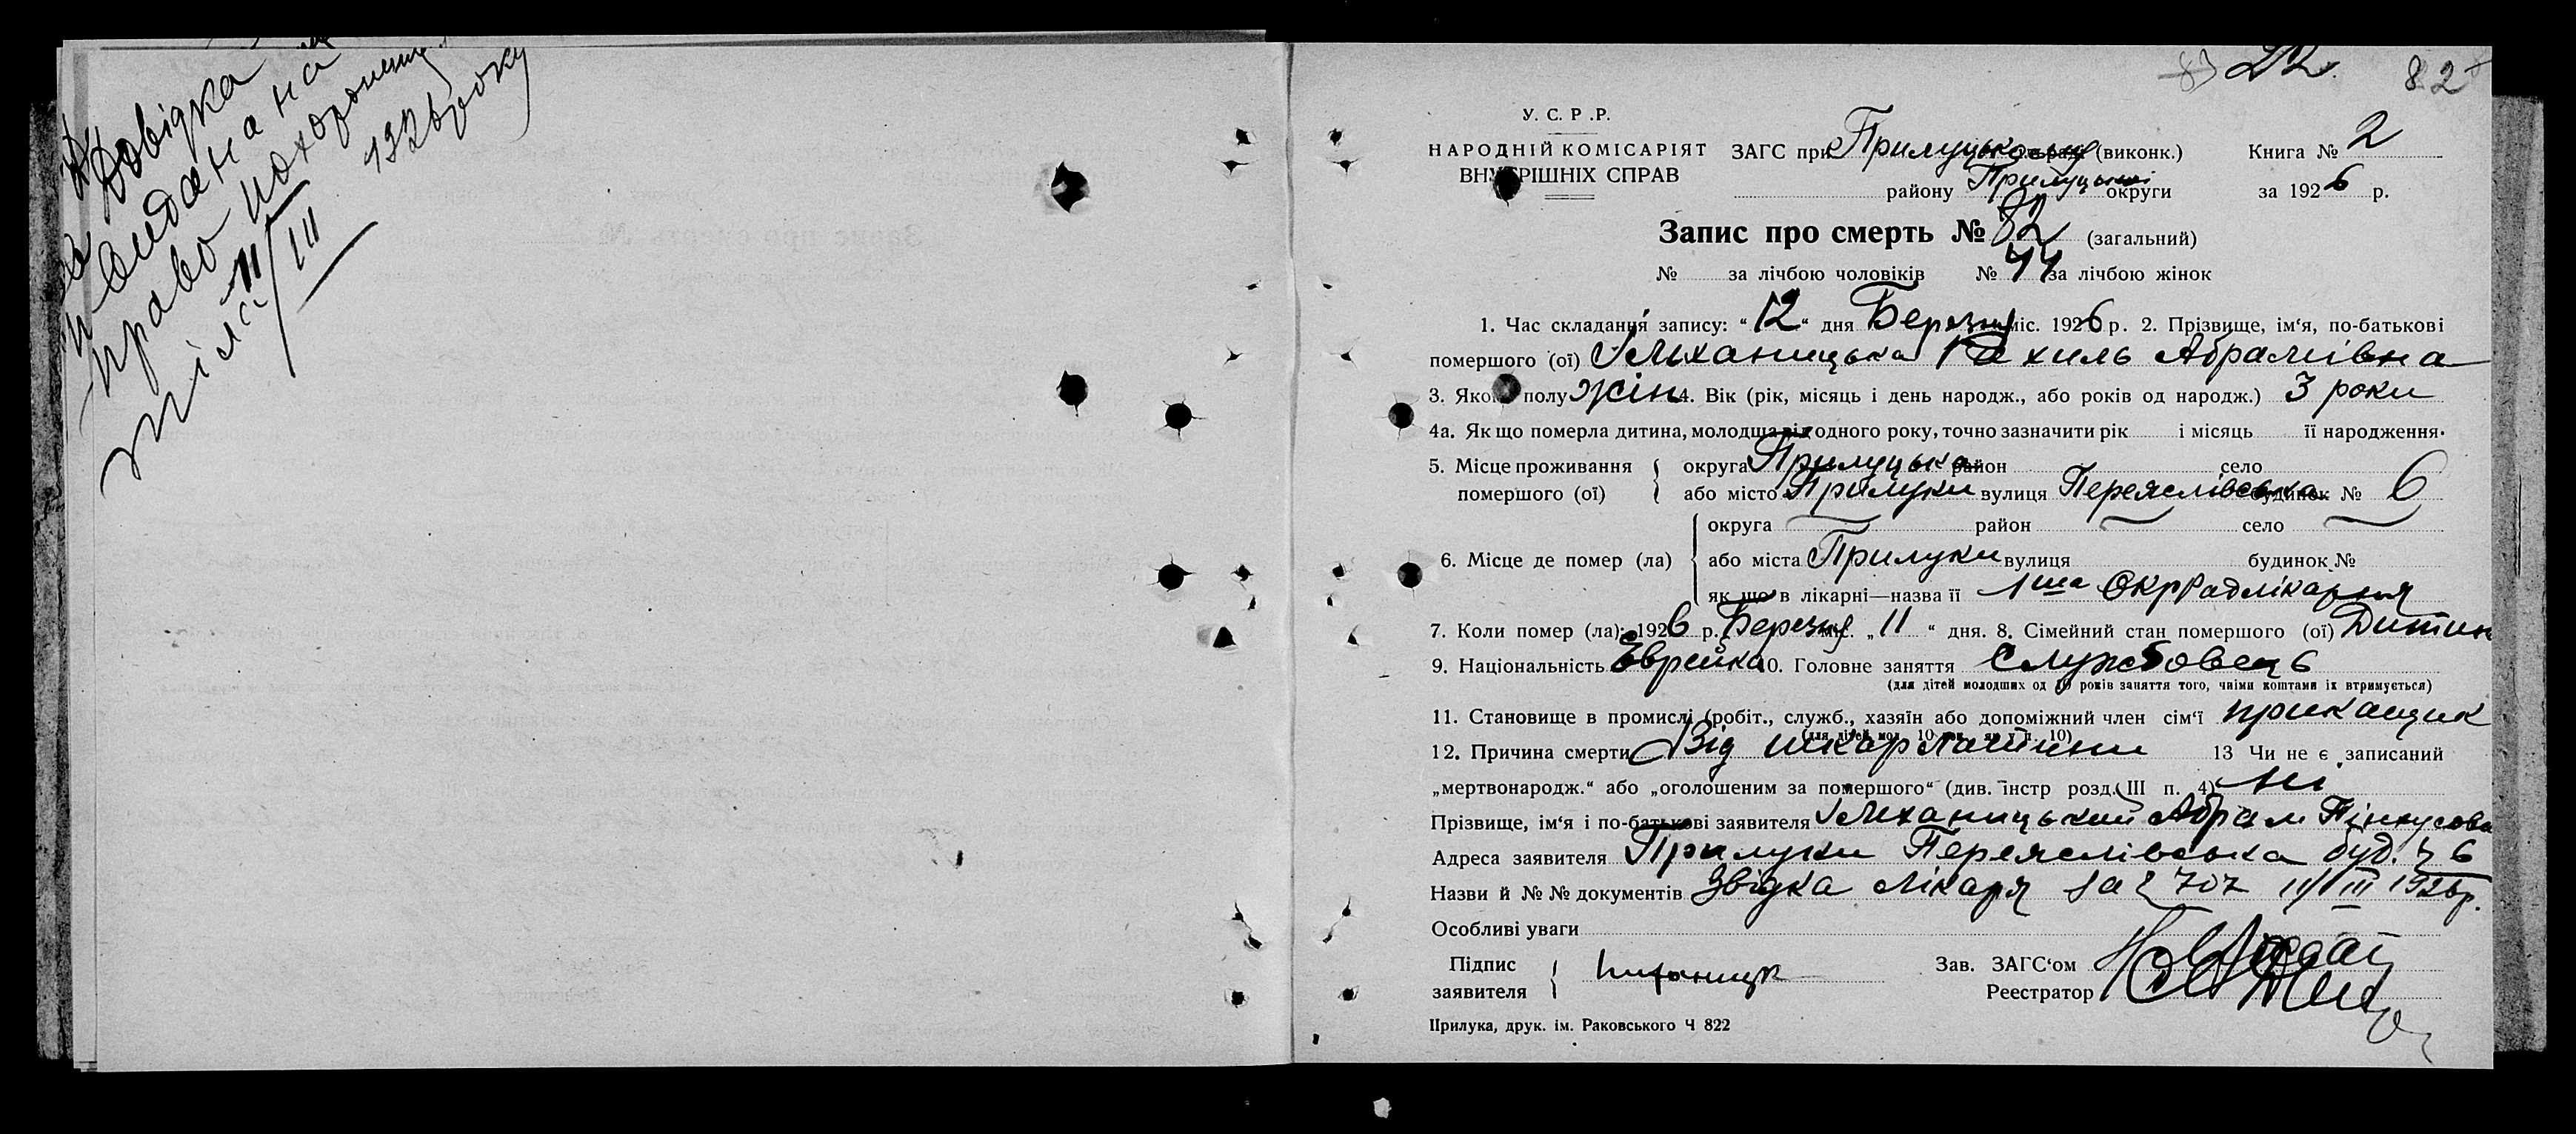 Довідка
видана на
право похорону
тіла 11/III 1926 року
22. 82
У. С. Р. Р.
НАРОДНІЙ КОМІСАРІЯТ
ВНУТРІШНІХ СПРАВ
ЗАГС при Прилуцькому (виконк.)
району Прилуцької округи
Книга № 2
за 1926 р.
Запис про смерть № 82 (загальний)
№ за лічбою чоловіків № 44 за лічбою жінок
1. Час складання запису: “12“ дня Березня міс. 1926 р. 2. Прізвище, ім‘я, по-батькові
помершого (ої) Рахиль Абрамівна
3. Якого полу жін 4. Вік (рік, місяць і день народж., або років од народж.) 3 роки
4а. Як що померла дитина, молодша від одного року, точно зазначити рік і місяць її народження.
5. Місце проживання помершого (ої) { округа Прилуцька район село
або місто Прилуки вулиця Переяслівська будинок № 6
6. Місце де помер (ла) { округа район село
або міста Прилуки вулиця будинок №
як що в лікарні—назва її 1ша ОкрРадлікарня
7. Коли помер (ла): 1926 р. Березня міс. „11“ дня. 8. Сімейний стан помершого (ої) Дитин
9. Національність Єврейка 10. Головне заняття Службовець
(для дітей молодших од 10 років заняття того, чиїми коштами їх втримується)
11. Становище в промислі (робіт., служб., хазяїн або допоміжний член сім‘ї прикащик
(для дітей мол. 10 рок. як у п. 10)
12. Причина смерти Від шкарлатини 13 Чи не є записаний
„мертвонародж.“ або „оголошеним за помершого“ (див. інстр розд. III п. 4) ні
Прізвище, ім‘я і по-батькові заявителя Абрам Пінкусов
Адреса заявителя Прилуки Переяслівська буд. 6
Назви й №№ документів Звідка лікаря за 707 11/III 1926р.
Особливі уваги
Підпис заявителя {
Зав. ЗАГС‘ом
Реестратор
Прилука, друк. ім. Раковського Ч 822